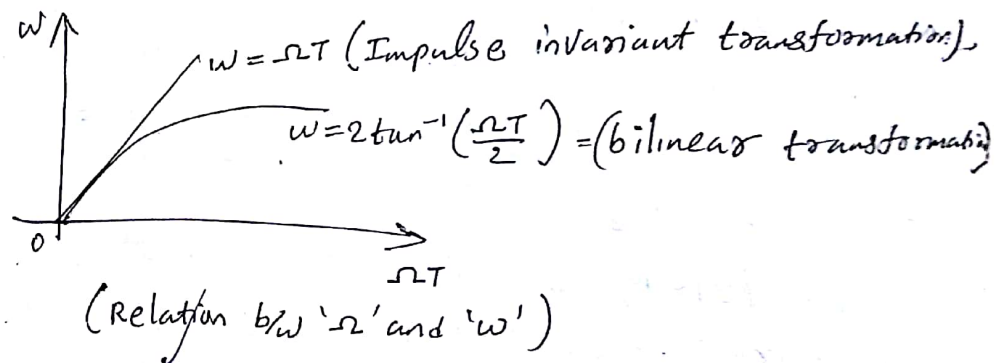 w
w = ΩT (Impulse invariant transformation).
w = 2 tan⁻¹ (ΩT/2) = (bilinear transformati)
0
ΩT
(Relation b/w 'Ω' and 'w')